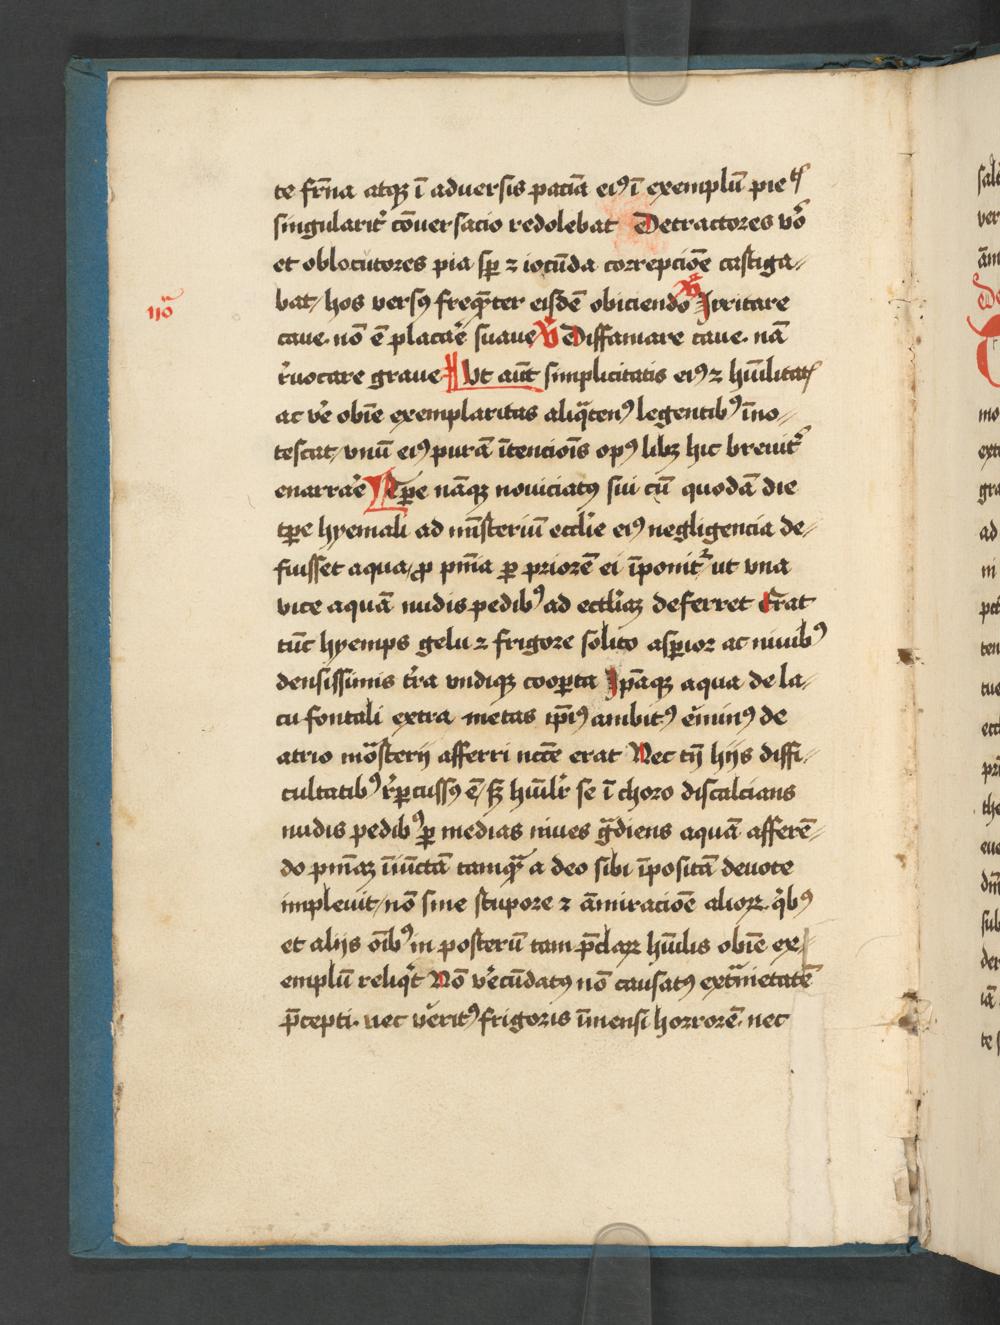 te frn̄a atqꝫ ī aduersis pacīa eiꝰ ī exemplū pieᵗꝭ
singularit᷑ cōuersacio redolebat Detractores v̄o
et oblocutores pia sp̄ ⁊ iocūda correpciōe castiga⸗
bat / hos versꝰ freq̄nter eisdē obiciendo v̄ Irritare
nō
caue. nō ē placar̄e suaue v̄ Diffamare caue. nā
r̄uocare graue Ut aūt simplicitatis eiꝰ ⁊ hūilitatꝭ
ac v̄e obīe exemplaritas aliq̄tenꝰ legentibꝰ īno⸗
tescat / vnū eiꝰ purā ītencōis opꝰ libꝫ hic breuit᷑
enarrar̄e Tꝑe nāqꝫ nouiciatꝰ sui cū quodā die
tꝑe hyemali ad mīsteriū eccl̄ie eiꝰ negligencia de⸗
fuisset aqua / ꝓ pn̄ia ꝑ priorē ei īponit᷑ ut vna
vice aquā nudis pedibꝰ ad eccl̄iaꝫ deferret Erat
tūc hyemps gelu ⁊ frigore solito asꝑior ac niuibꝰ
densissimis t̄ra vndiqꝫ cooꝑta Ip̄aqꝫ aqua de la⸗
cu fontali extra metas ip̄iꝰ ambitꝰ ēminꝰ de
atrio mōsterij afferri ncc̄e erat Nec tn̄ hijs diffi⸗
cultatibꝰ r̄ꝑcussꝰ ē / sꝫ hūilr̄ se ī choro discalcians
nudis pedibꝰ ꝑ medias niues gᵃdiens aquā afferē⸗
do pn̄iaꝫ īiūctā tamqᵃ̄ a deo sibi īpositā deuote
impleuit / nō sine stupore ⁊ am̄iraciōe alioꝝ. qⁱbꝰ
et alijs oībꝰ in posterū tam p̄claꝝ hūilis obīe ex⸗
emplū reliqⁱt Nō v̄ecūdatꝰ nō causatꝰ extᵃnietatē
p̄cepti. nec v̄eritꝰ frigoris īmensi horrorē. nec